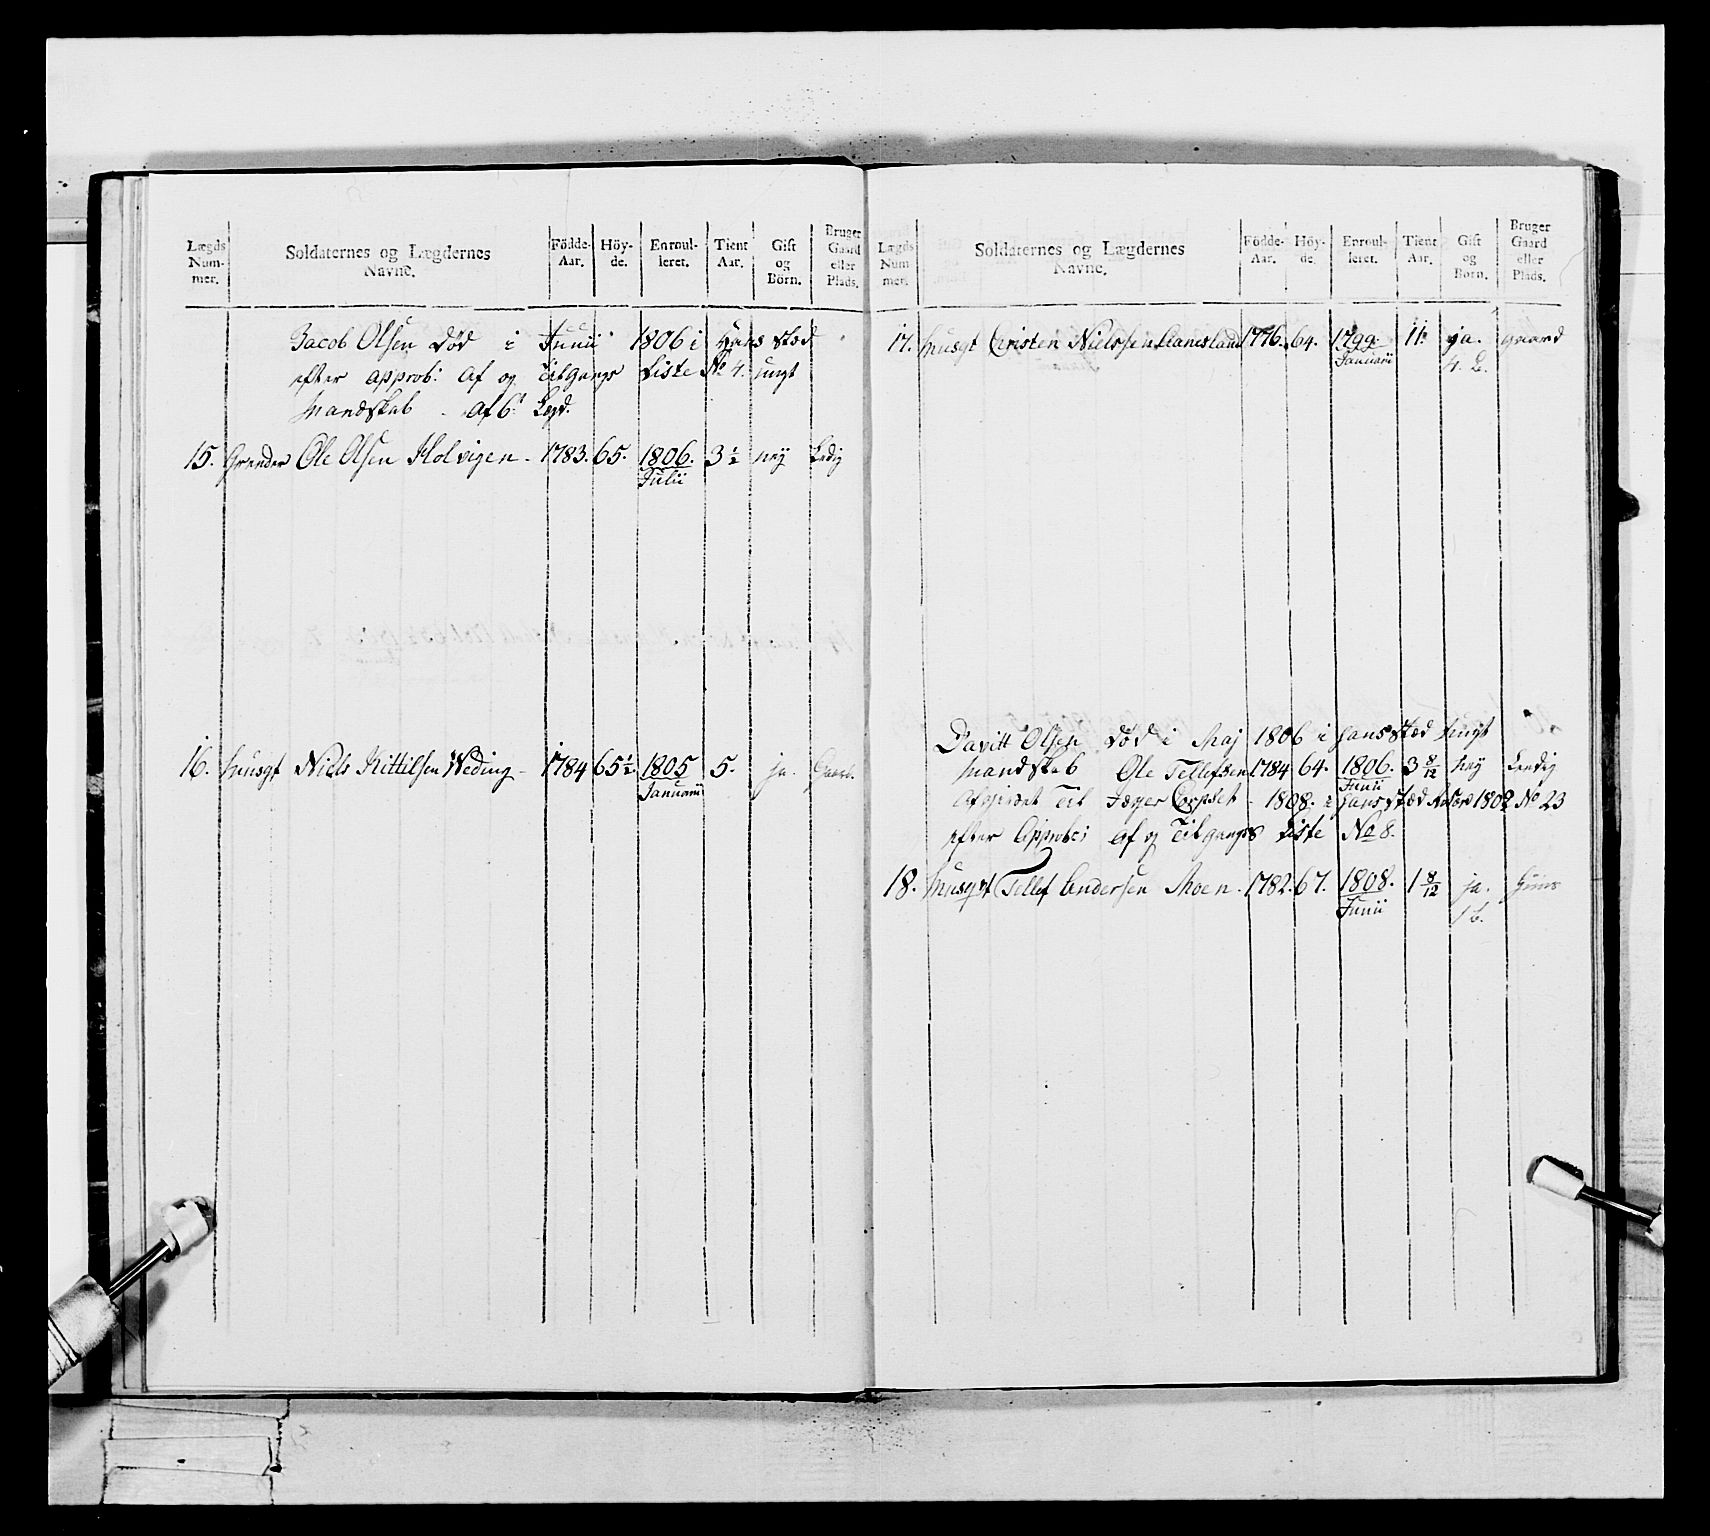 Lægds Num- mer.
Soldaternes og Lægdernes Navne.
Födde- Aar.
Höy- de.
Enroul- leret.
Tient Aar.
Gift og Börn.
Bruger Gaard eller Plads.
Jacob Olsen død i Junii 1806 i Hans stæd
efter approb: af og Tilgangs Liste No 4. ungt
Mandskab af 6t Legd.
15. Grender Ole Olsen Holvigen - 1783. 65. 1806. 3 1/2 ney Ledig
Julii
16. Musqt Niels Kittilsen Weding - 1784 65 1/2. 1805 5. ja. Gaard.
Januarii
Lægds Num mer.
Soldaternes og Lægdernes Navne.
Födde- Aar.
Höy- de.
Enroul- leret.
Tient Aar.
Gift og Born.
Bruger Gaard eller Plads.
17. Musqt Christen Nielssen 1776. 64. 1799. 11. ja. gaard
Januarii 4. B.
Davitt Olsen død i Maj 1806 i hans stæd ungt
Mandskab Ole Tellefsen 1784 64. 1806. 3 8/12 ney Lendig
Junii
Til Jæger Corpset - 1808. i hans stæd No 23
efter Approb: af og Tilgangs Liste No 8.
18. Musqt Tellef Andersen Moen. 1782. 67. 1808. 1 8/12 ja. Huus
Junii 1 b.